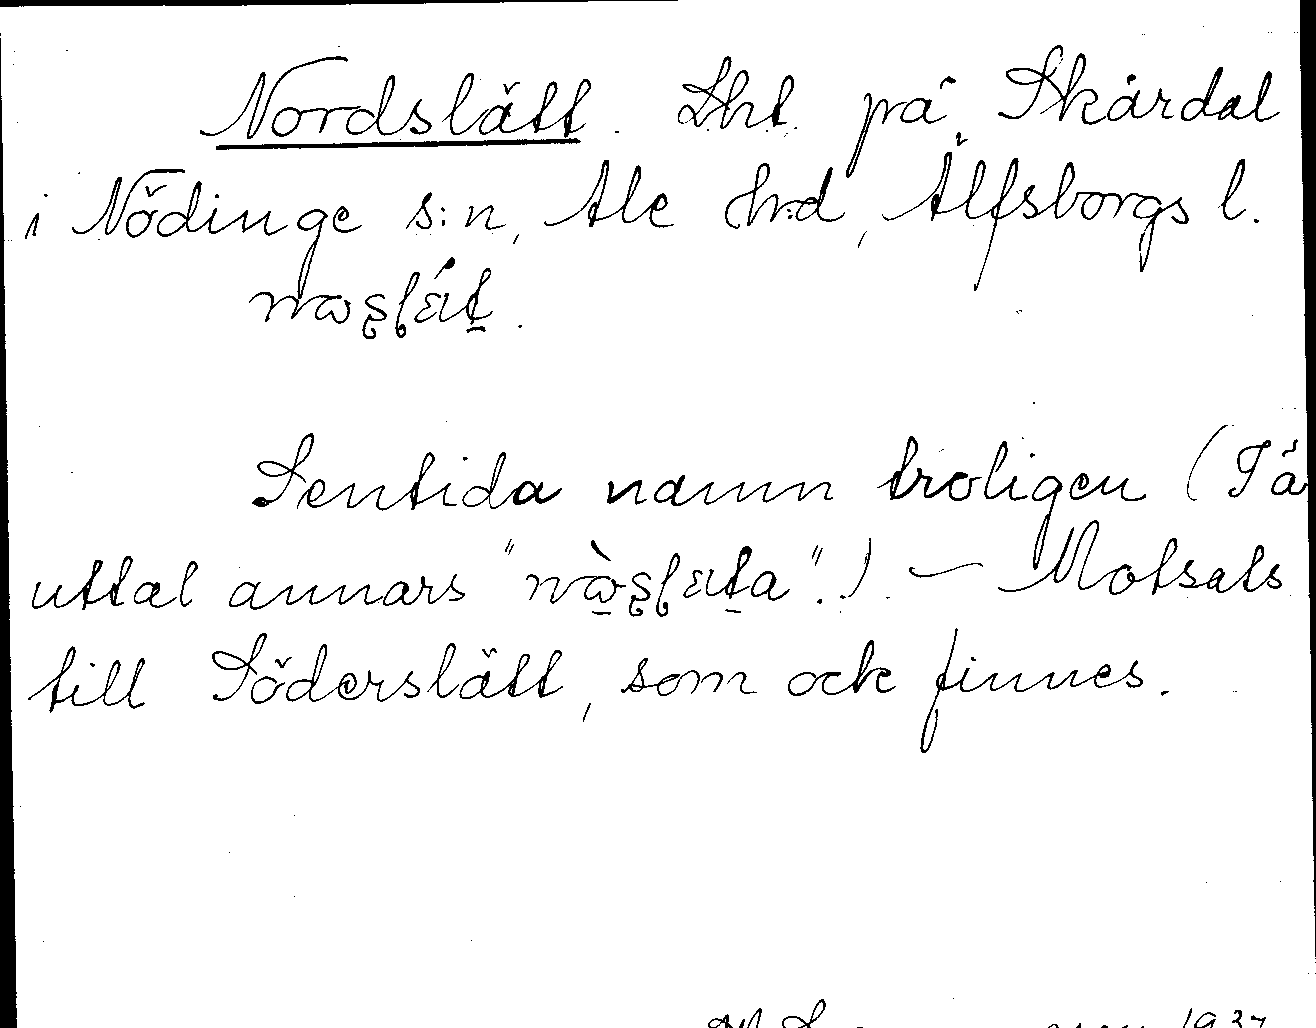 Nordslätt. Lht. på Skårdal
i Nödinge s:n, Ale hrd, Älfsborgs l.
Sentida namn troligen (Få
uttal annars " ".) — Motsats
till Söderslätt, som ock finnes.
1937